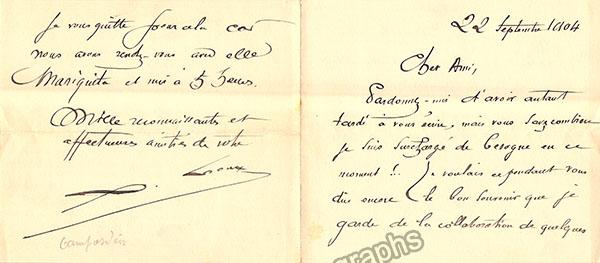 22 Septembre 1904
Cher Ami,
Pardonnez-moi d'avoir autant
tardé à vous écrire, mais vous savez combien
je suis surchargé de besogne en ce
moment !.. Je voulais cependant vous
dire encore le bon souvenir que je
garde de la collaboration de quelques
Je vous quitte pour cela car
nous avons rendez-vous avec elle
Mariquita et moi à 5 heures.
Mille reconnaissantes et
affectueuses amitiés de votre
graphs